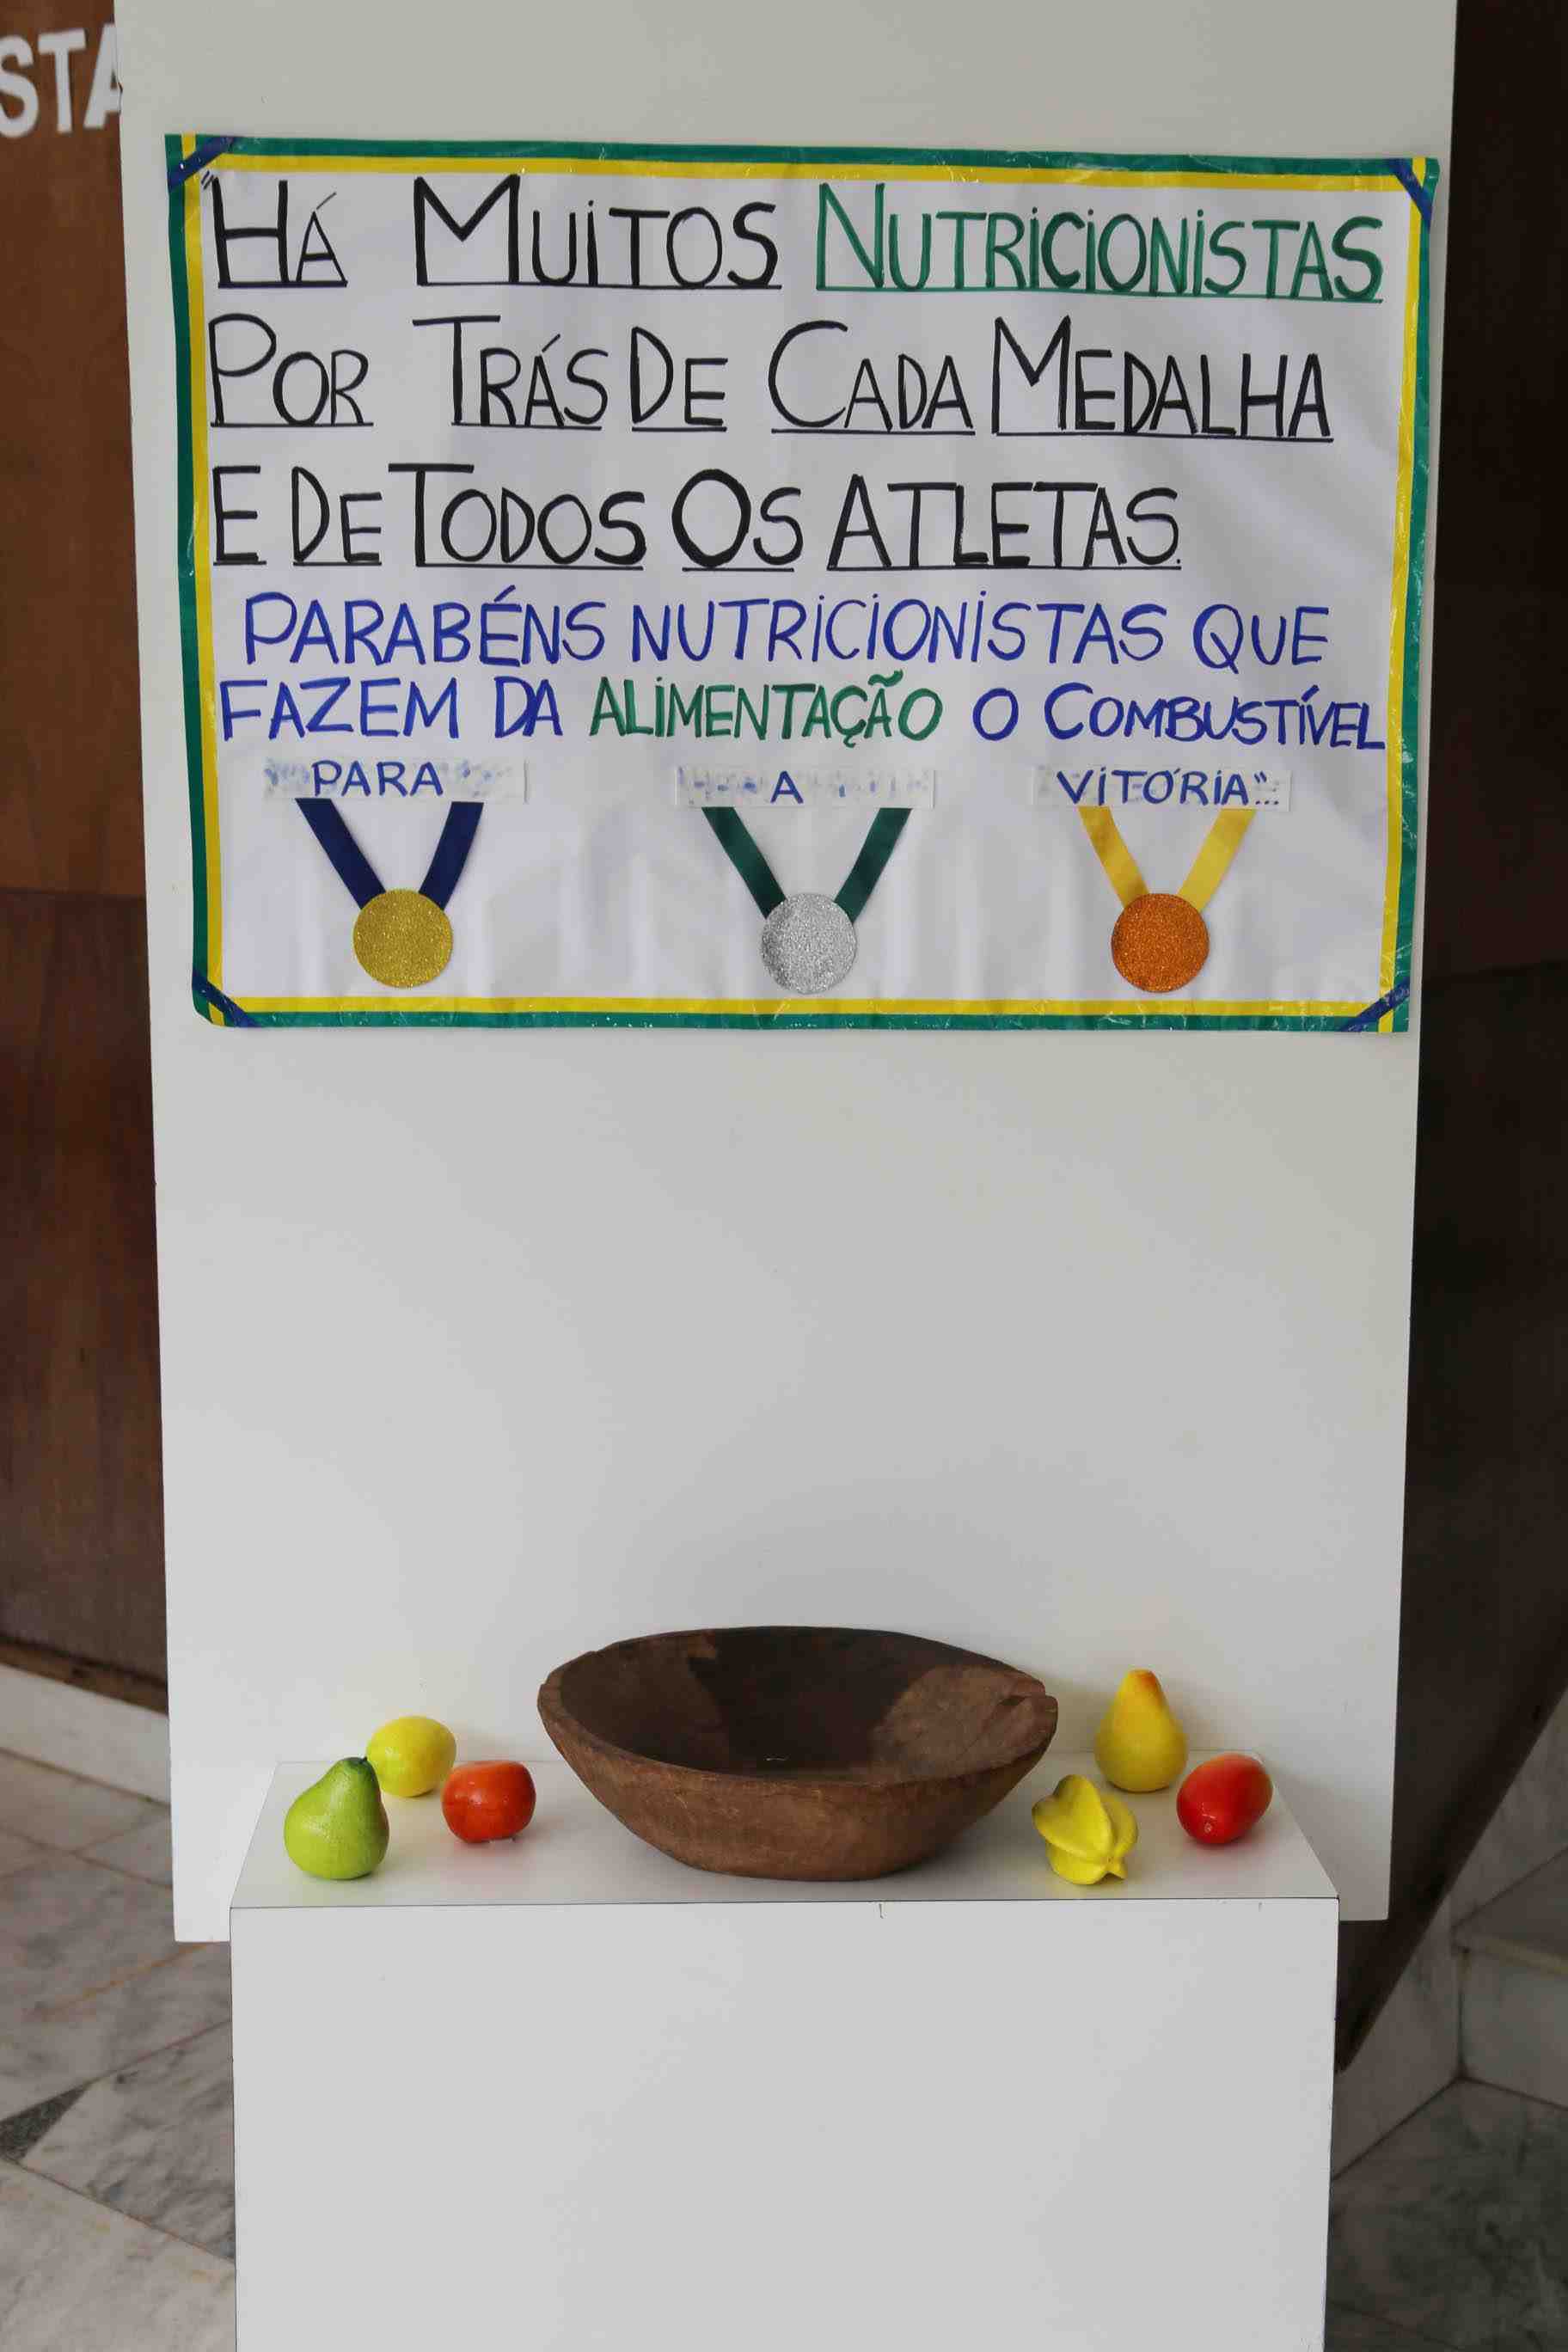 STA
"HÁ MUITOS NUTRICIONISTAS
POR TRÁS DE CADA MEDALHA
E DE TODOS OS ATLETAS.
PARABÉNS NUTRICIONISTAS QUE
FAZEM DA ALIMENTAÇÃO O COMBUSTÍVEL
PARA A VITÓRIA"...